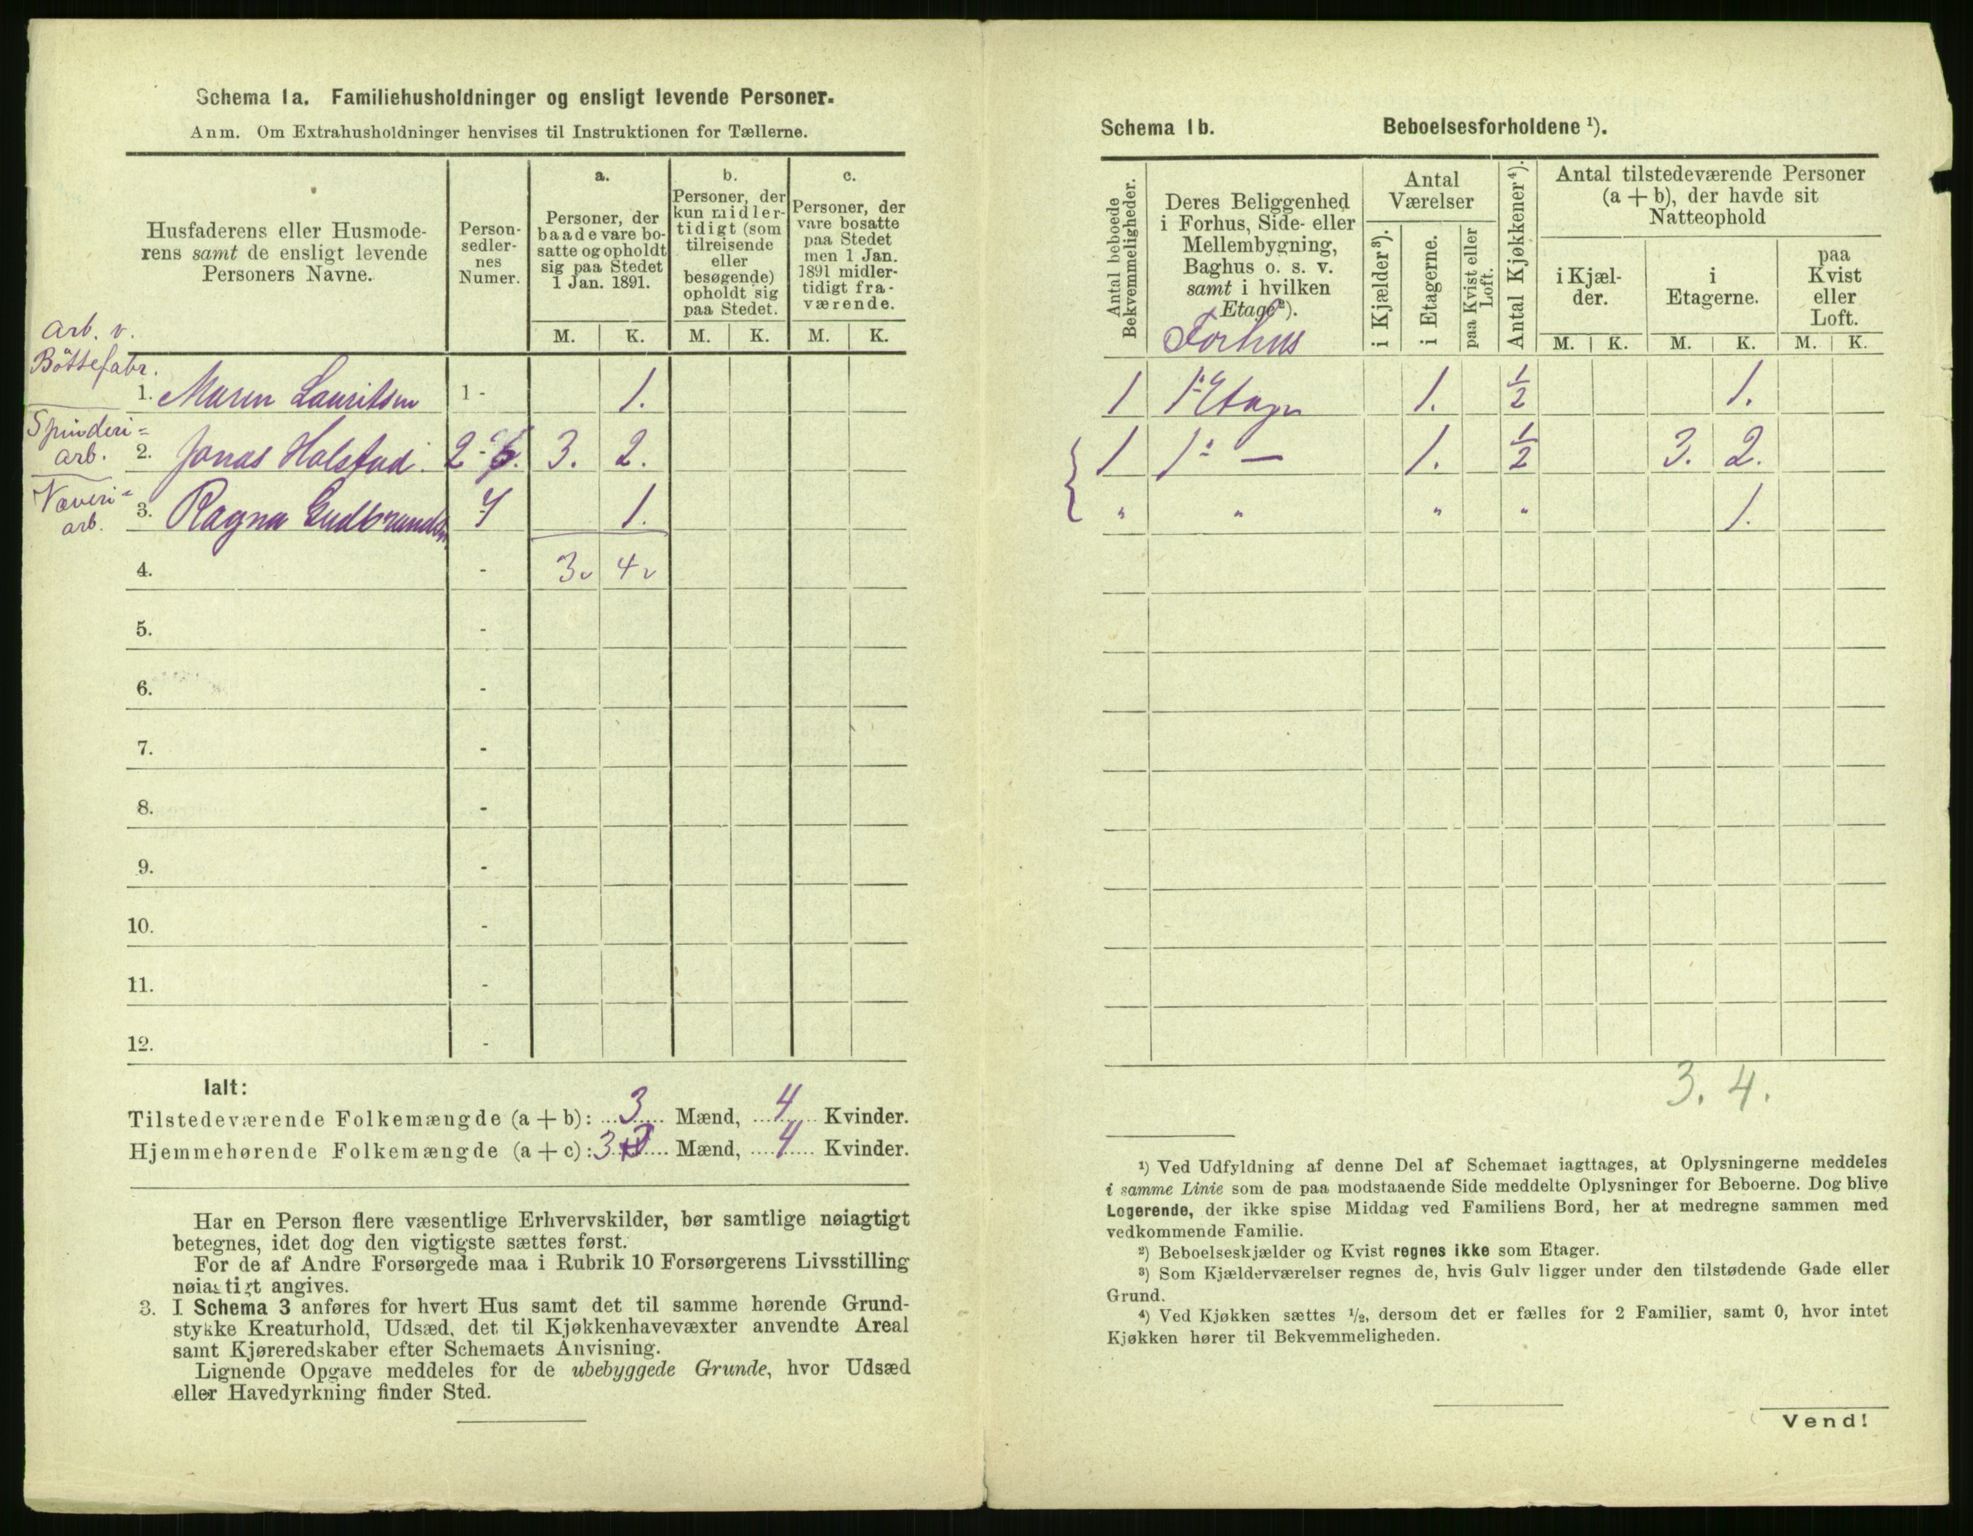 Schema 1a. Familiehusholdninger og ensligt levende Personer.
Anm. Om Extrahusholdninger henvises til Instruktionen for Tællerne.
Husfaderens eller Husmode-
rens samt de ensligt levende
Personers Navne.
Person-
sedler-
nes
Numer.
a.
Personer, der
baade vare bo-
satte og opholdt
sig paa Stedet
1 Jan. 1891.
b.
Personer, der
kun midler-
tidigt (som
tilreisende
eller
besøgende)
opholdt sig
paa Stedet.
c.
Personer, der
vare bosatte
paa Stedet
men 1 Jan.
1891 midler-
tidigt fra-
værende.
M. K. M. K. M. K.
Arb. v.
Böttefabr.
1. Maren Lauritsen 1 - 1.
Spinderi=
arb.
2. Jonas Halstad. 2 - 6. 3. 2.
Væveri=
arb.
3. Ragna Gudbrandsen 7 1.
4. - 3 4
5. -
6. -
7. -
8. -
9. -
10. -
11. -
12. -
Ialt:
Tilstedeværende Folkemængde (a + b): 3 Mænd, 4 Kvinder.
Hjemmehørende Folkemængde (a + c): 3 Mænd, 4 Kvinder.
Har en Person flere væsentlige Erhvervskilder, bør samtlige nøiagtigt
betegnes, idet dog den vigtigste sættes først.
For de af Andre Forsørgede maa i Rubrik 10 Forsørgerens Livsstilling
nøiagtigt angives.
3. I Schema 3 anføres for hvert Hus samt det til samme hørende Grund-
stykke Kreaturhold, Udsæd, det til Kjøkkenhavevæxter anvendte Areal
samt Kjøreredskaber efter Schemaets Anvisning.
Lignende Opgave meddeles for de ubebyggede Grunde, hvor Udsæd
eller Havedyrkning finder Sted.
Schema 1b. Beboelsesforholdene ¹).
Antal beboede
Bekvemmeligheder.
Deres Beliggenhed
i Forhus, Side- eller
Mellembygning,
Baghus o. s. v.
samt i hvilken
Etage²).
Forhus
Antal
Værelser
i Kjælder³).
i Etagerne.
paa Kvist eller
Loft.
Antal Kjøkkener⁴).
Antal tilstedeværende Personer
(a + b), der havde sit
Natteophold
i Kjæl-
der.
i
Etagerne.
paa
Kvist
eller
Loft.
M. K. M. K. M. K.
1 1ste Etage 1. ½ 1.
1 1ste — 1. ½ 3. 2.
" " " " 1.
3. 4.
¹) Ved Udfyldning af denne Del af Schemaet iagttages, at Oplysningerne meddeles
i samme Linie som de paa modstaaende Side meddelte Oplysninger for Beboerne. Dog blive
Logerende, der ikke spise Middag ved Familiens Bord, her at medregne sammen med
vedkommende Familie.
²) Beboelseskjælder og Kvist regnes ikke som Etager.
³) Som Kjælderværelser regnes de, hvis Gulv ligger under den tilstødende Gade eller
Grund.
⁴) Ved Kjøkken sættes ½, dersom det er fælles for 2 Familier, samt 0, hvor intet
Kjøkken hører til Bekvemmeligheden.
Vend!